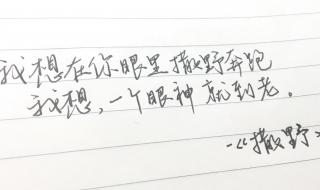 我想在你眼里撒野奔跑
我想,一个眼神就到老。
-《撒野》